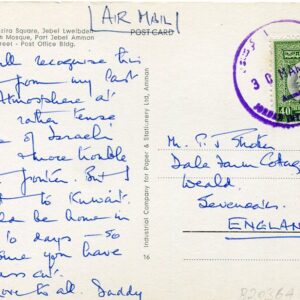 [AIR MAIL]
zira Square, Jebel Lweibdeh
h Mosque, Part Jebel Amman
treet - Post Office Bldg.
POST CARD
ll recognise this
from my last
Atmosphere at
rather tense
of Israeli
& more trouble
frontier. But I
to Kuwait.
ld be home in
10 days - so
you have
Love to all. Daddy
Industrial Company for Paper & Stationery Ltd, Amman
16
30 MAR
Mr. P J
Dale Farm Cottage
Weald,
Sevenoaks,
ENGLAND